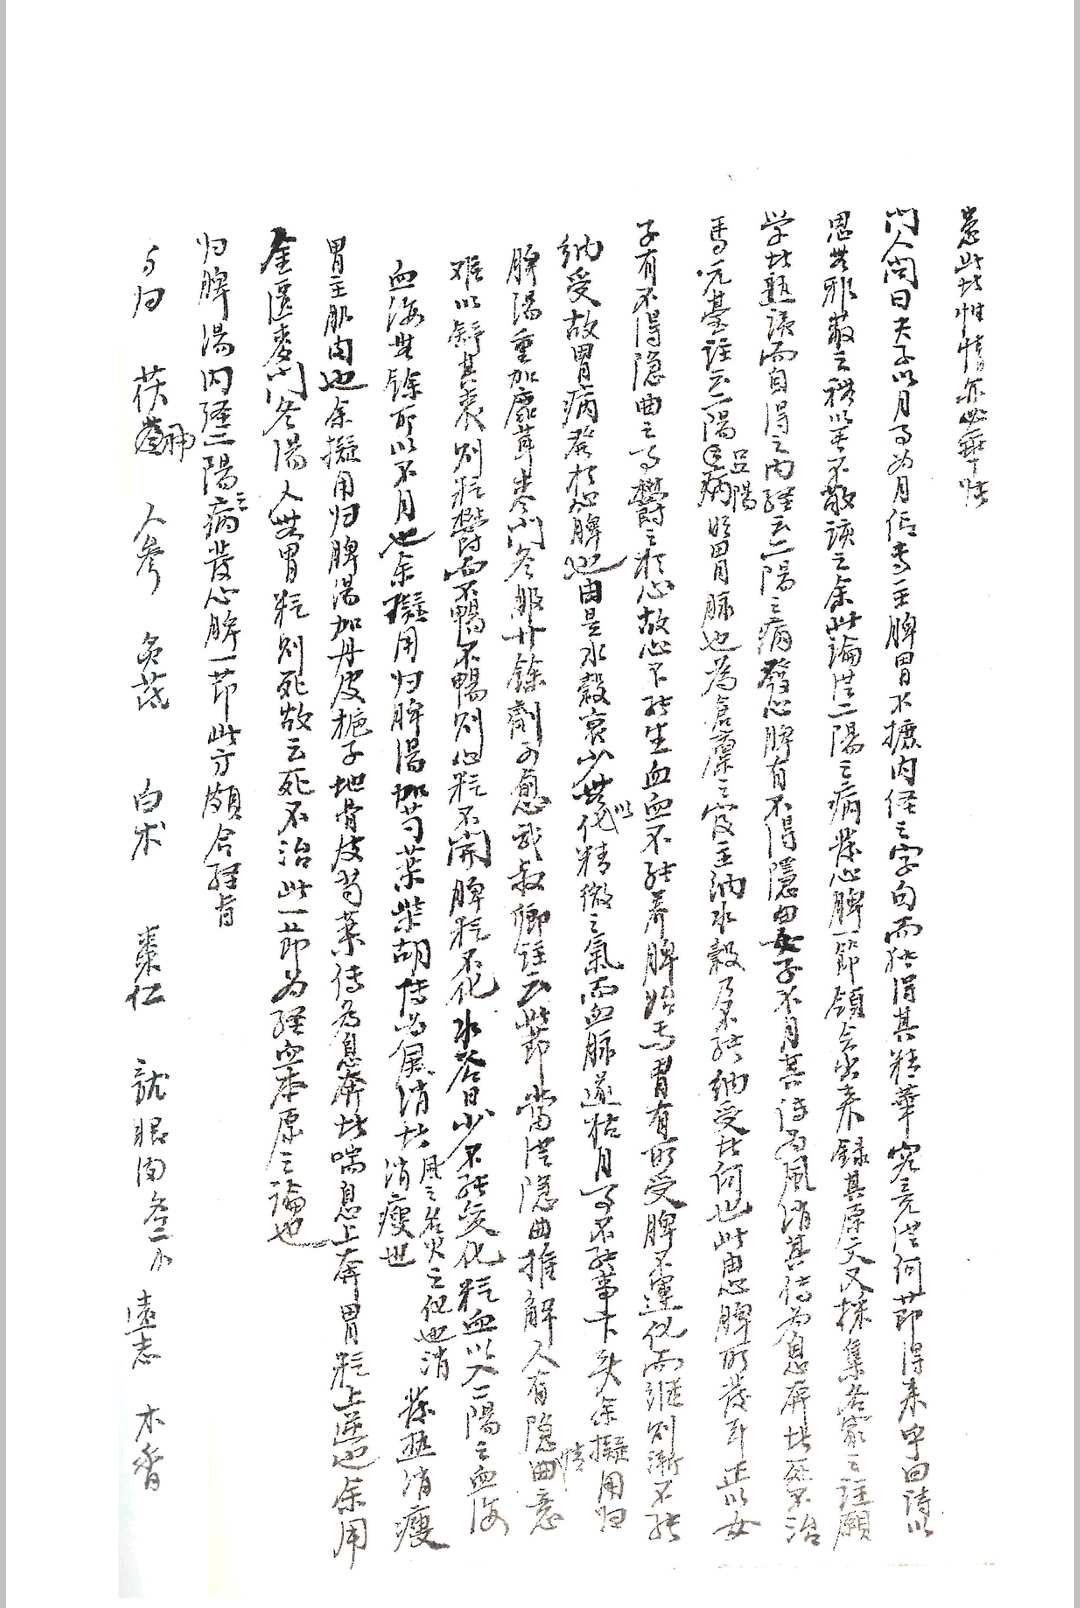 患此者性情亦必乖
門人問曰夫子以月事為月信專主脾胃不摭内経之字句而能得其精華究竟從何節得来中曰詩以
思無邪蔽之禮以毋不敬該之余此論從二陽之病發心脾一節領会出来録其原文又採集各家之註願
学者熟讀而自得之内経云二陽之病發心脾有不得隱曲女子不月其傳為風消其傳為息奔者死不治
馬元臺註云二陽足陽明胃脉也為倉廩之官主納水穀乃不能納受者何也此由心脾所發耳正以女
子有不得隐曲之事欝之於心故心不能生血血不能养脾始焉胃有所受脾不運化而継則漸不能
納受故胃病發於心脾也由是水穀衰少無以化精微之氣而血脉遂枯月事不能時下矣余擬用归
脾湯重加鹿茸麦門冬服廿餘劑可愈武叔卿註云此節當從隐曲推解人有隐曲意情
难以舒其衷则氣欝而不暢不暢则心氣不開脾氣不化水谷日少不能变化氣血以入二陽之血海
血海無餘所以不月也余擬用归脾湯加芍薬柴胡傳為風消者風之名火之化也消 發熱消瘦
消瘦也
胃主肌肉也余擬用归脾湯加丹皮梔子地骨皮芍薬傳為息奔者喘息上奔胃氣上逆也余用
金匱麦門冬湯人無胃氣则死故云死不治此一節为経血本原之論也
归脾湯内経二陽之病發心脾一節此方頗合経旨
当归 茯神 人參 炙芪 白术 棗仁 龍眼肉 遠志 木香